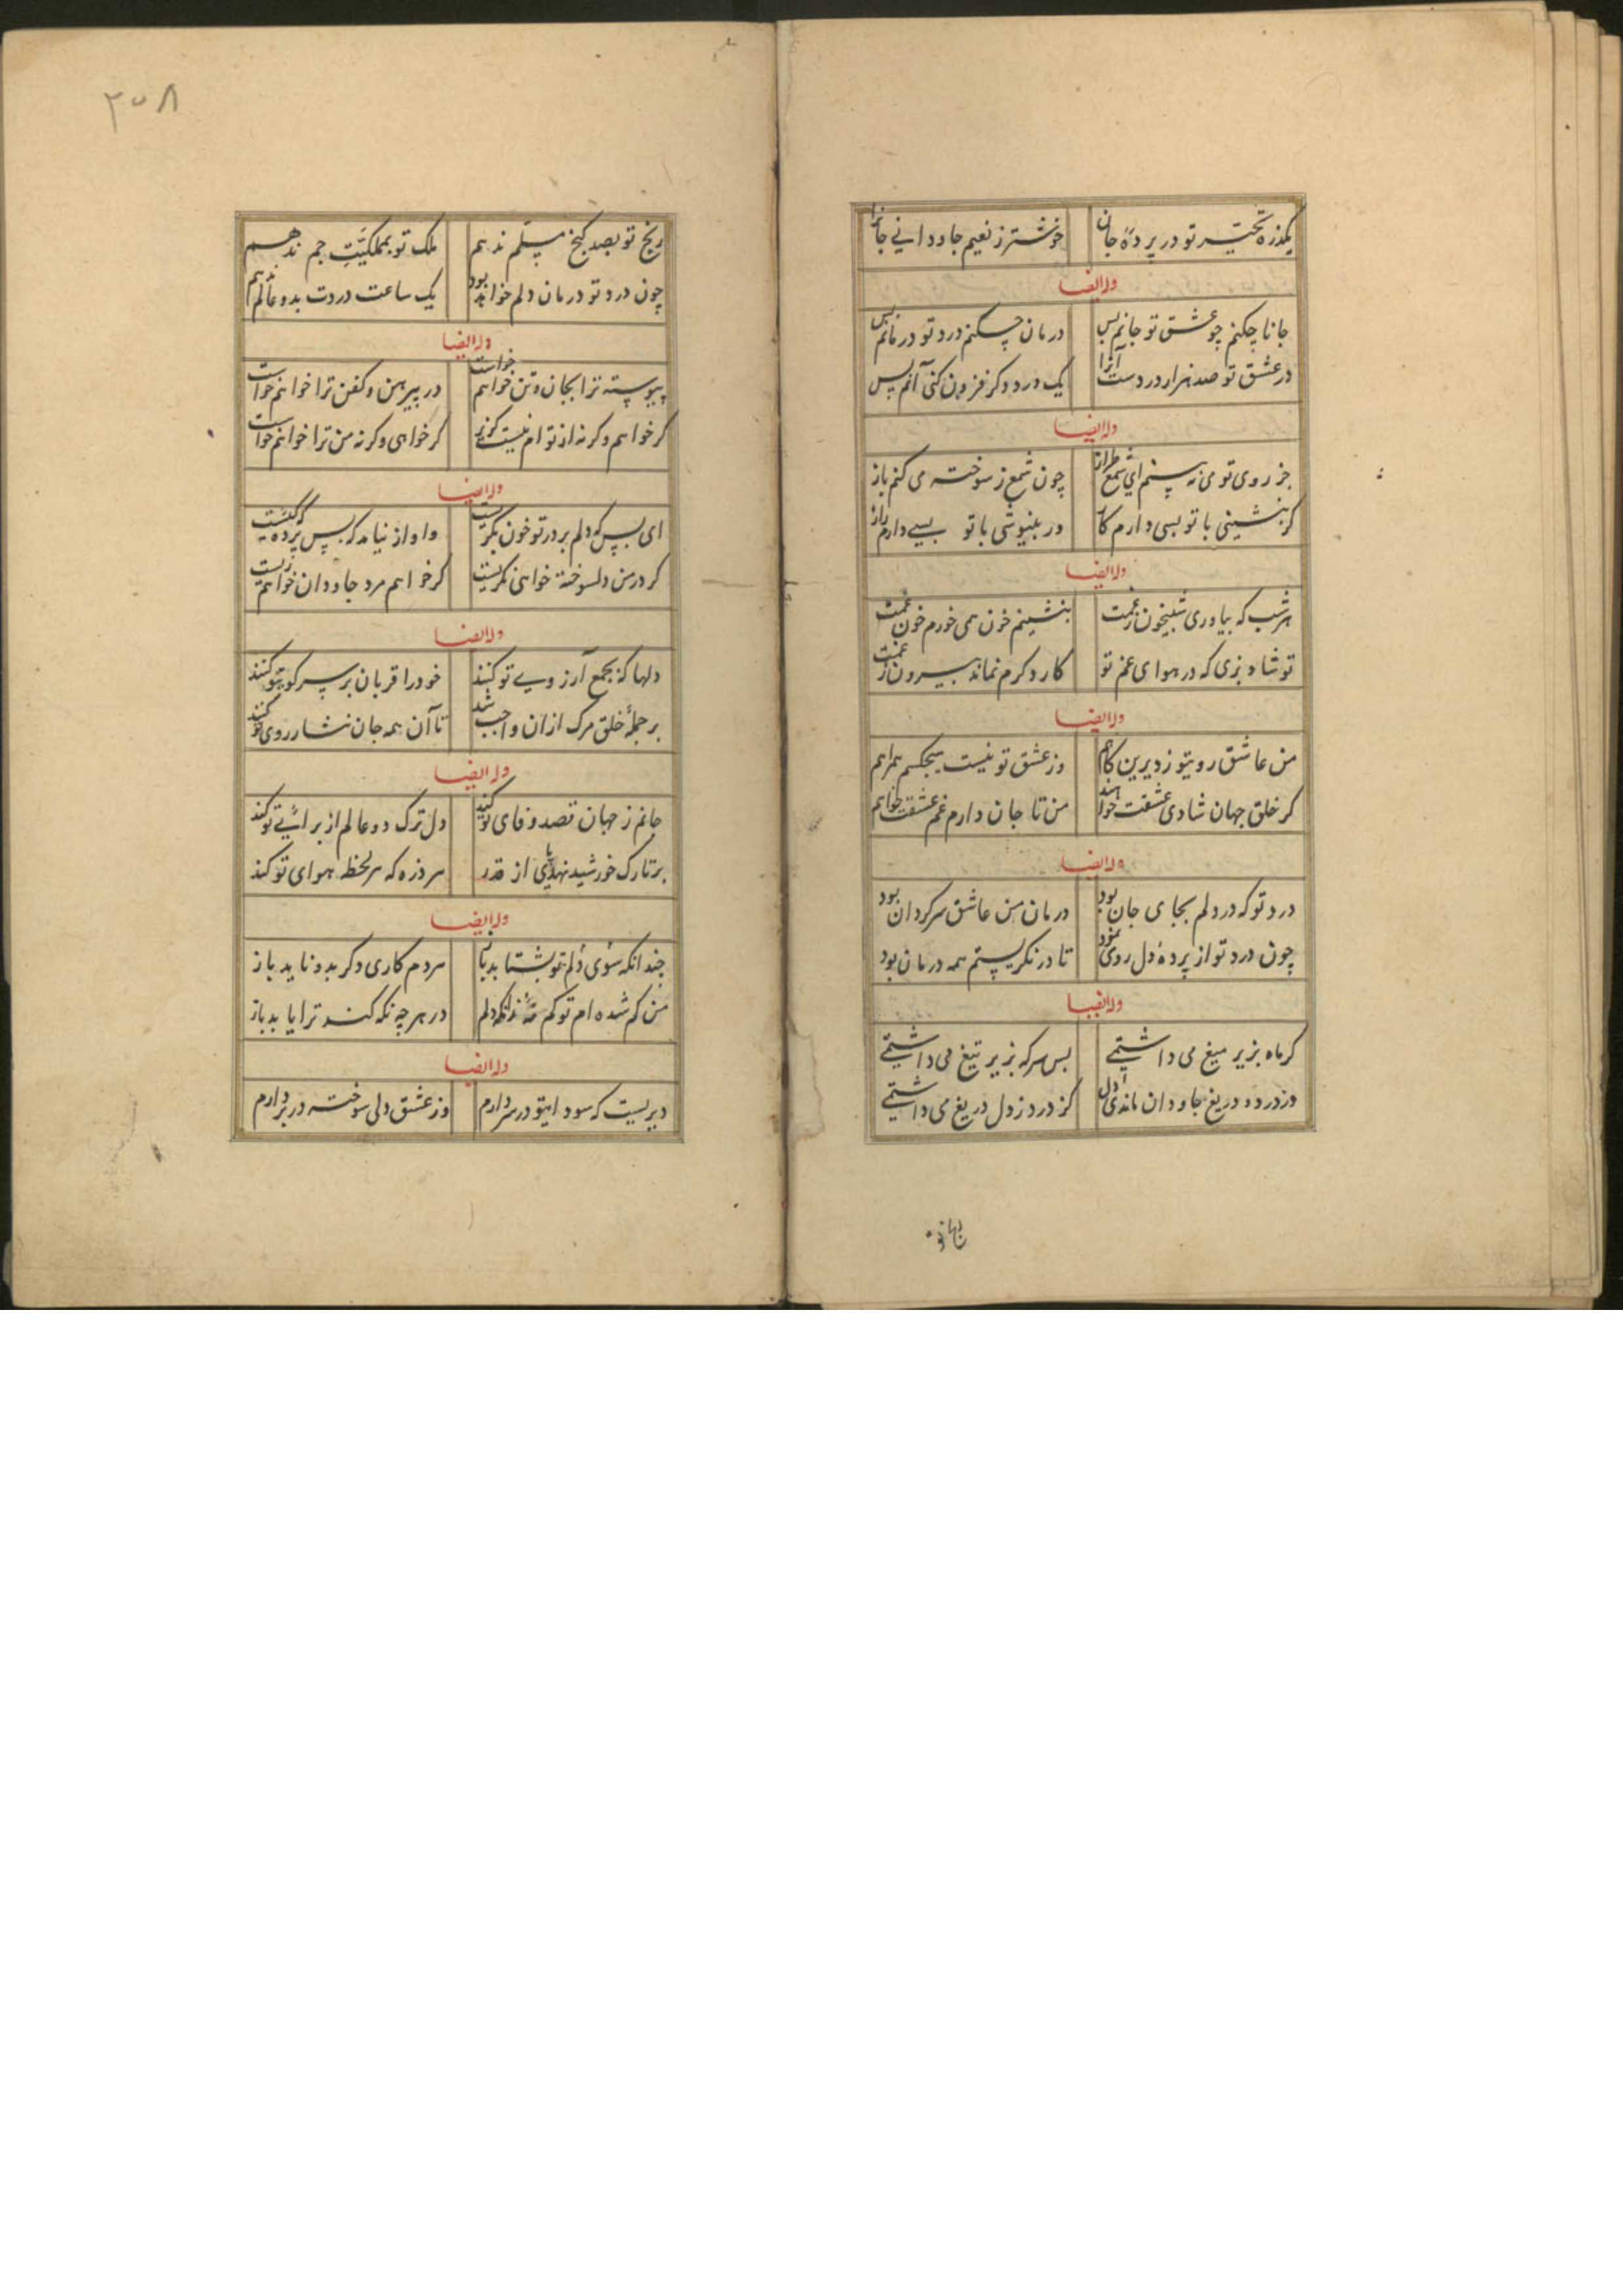 یکذره تحیر تو در پردهٔ جان خوشتر ز نعیم جاودانی جانرا
وله ایضا
جانا چکنم چو عشق تو جانم بس درمان چکنم درد تو درمانم بس
در عشق تو صد هزار دردست آنرا یک درد دکر فزون کنی آنم بس
وله ایضا
جز روی تو می نه بینم ای شمع طراز چون شمع ز سوخته می کنم باز
کر بنشینی با تو بسی دارم کار ور بنیوشی با تو بسی دارم راز
وله ایضا
هر شب که بیاوری شبیخون ز غمت بنشینم خون همی خورم خون غمت
تو شاد بزی که در هوای غم تو کار دکرم نماند بیرون ز غمت
وله ایضا
من عاشق رویتو ز دیرین کاهم وز عشق تو نیست هیچکس همراهم
کر خلق جهان شادی عشقت خواهند من تا جان دارم غم عشقت خواهم
وله ایضا
درد تو که در دلم بجای جان بود درمان من عاشق سرکردان بود
چون درد تو از پردهٔ دل روی نمود تا در نکریستم همه درمان بود
وله ایضا
کر ماه بزیر میغ می داشتیی بس سر که بزیر تیغ می داشتیی
در درد و دریغ جاودان ماندی دل کز درد ز دل دریغ می داشتیی
۳۰۸
رنج تو بصد کنج مسلم ندهم ملک تو بمملکت جم ندهم
چون درد تو درمان دلم خواهد بود یک ساعت دردت بدو عالم ندهم
وله ایضا
پیوسته ترا بجان و تن خواهم خواست در پیرهن و کفن ترا خواهم خواست
کر خواهم و کر نه از توام نیست کزیر کر خواهی و کر نه من ترا خواهم خواست
وله ایضا
ای بس که دلم بر در تو خون بکریست واواز نیامد که پس پرده که کیست
کر در من دلسوخته خواهی نکریست کر خواهم مرد جاودان خواهم زیست
وله ایضا
دلها که بجمع آرزوی تو کنند خود را قربان بر سر کوی تو کنند
بر جملهٔ خلق مرک ازان واجب شد تا آن همه جان نثار روی تو کنند
وله ایضا
جانم ز جهان قصد وفای تو کند دل ترک دو عالم از برای تو کند
بر تارک خورشید نهد پای از قدر هر ذره که هر لحظه هوای تو کند
وله ایضا
چندانکه سوی دلم تو بشتابد باز هر دم کاری دکر بدو نابد باز
من کم شده ام تو کم نه زانکه دلم در هر چه نکه کند ترا یابد باز
وله ایضا
دیریست که سودایتو در سر دارم وز عشق دلی سوخته در بر دارم